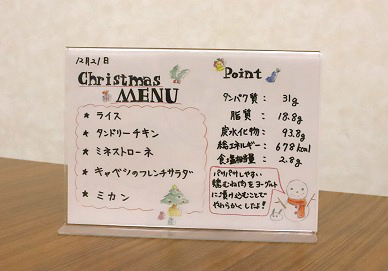 12月21日
Christmas
MENU
★ ライス
★ タンドリーチキン
★ ミネストローネ
★ キャベツのフレンチサラダ
★ ミカン
Point
タンパク質： 31g
脂質： 18.8g
炭水化物： 93.8g
総エネルギー： 678kcal
食塩相当量： 2.8g
パサパサしやすい
鶏むね肉をヨーグルト
に漬け込むことで
やわらかくしたよ！